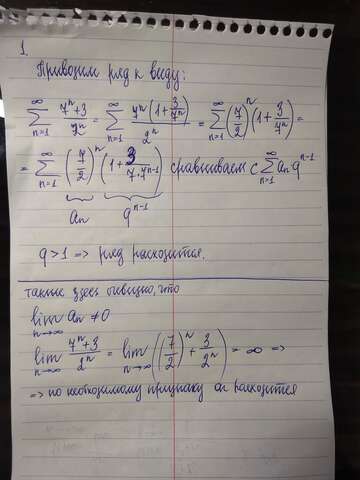 1.
Приводим ряд к виду:
∞∑n=1 (7^n+3)/2^n = ∞∑n=1 7^n(1+3/7^n)/2^n = ∞∑n=1 (7/2)^n (1+3/7^n) =
= ∞∑n=1 (7/2)^n (1+3/(7·7^(n-1))) сравниваем с ∞∑n=1 a_n q^(n-1)
a_n q^(n-1)
q>1 => ряд расходится.
также здесь очевидно, что
lim n→∞ a_n ≠ 0
lim n→∞ (7^n+3)/2^n = lim n→∞ ((7/2)^n + 3/2^n) = ∞ =>
=> по необходимому признаку он расходится